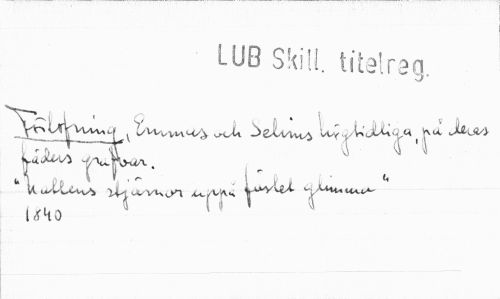 LUB Skill. titelreg.
Förlofning, Emmas och Selims högtidliga, på deras
fäders grafvar.
"Nattens stjärnor uppå fästet glimma"
1840